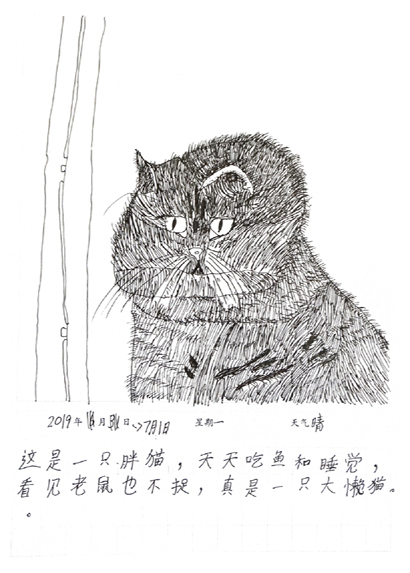 2019年 月 日->7月1日 星期一 天气晴
这是一只胖猫，天天吃鱼和睡觉，
看见老鼠也不捉，真是一只大懒猫。
。